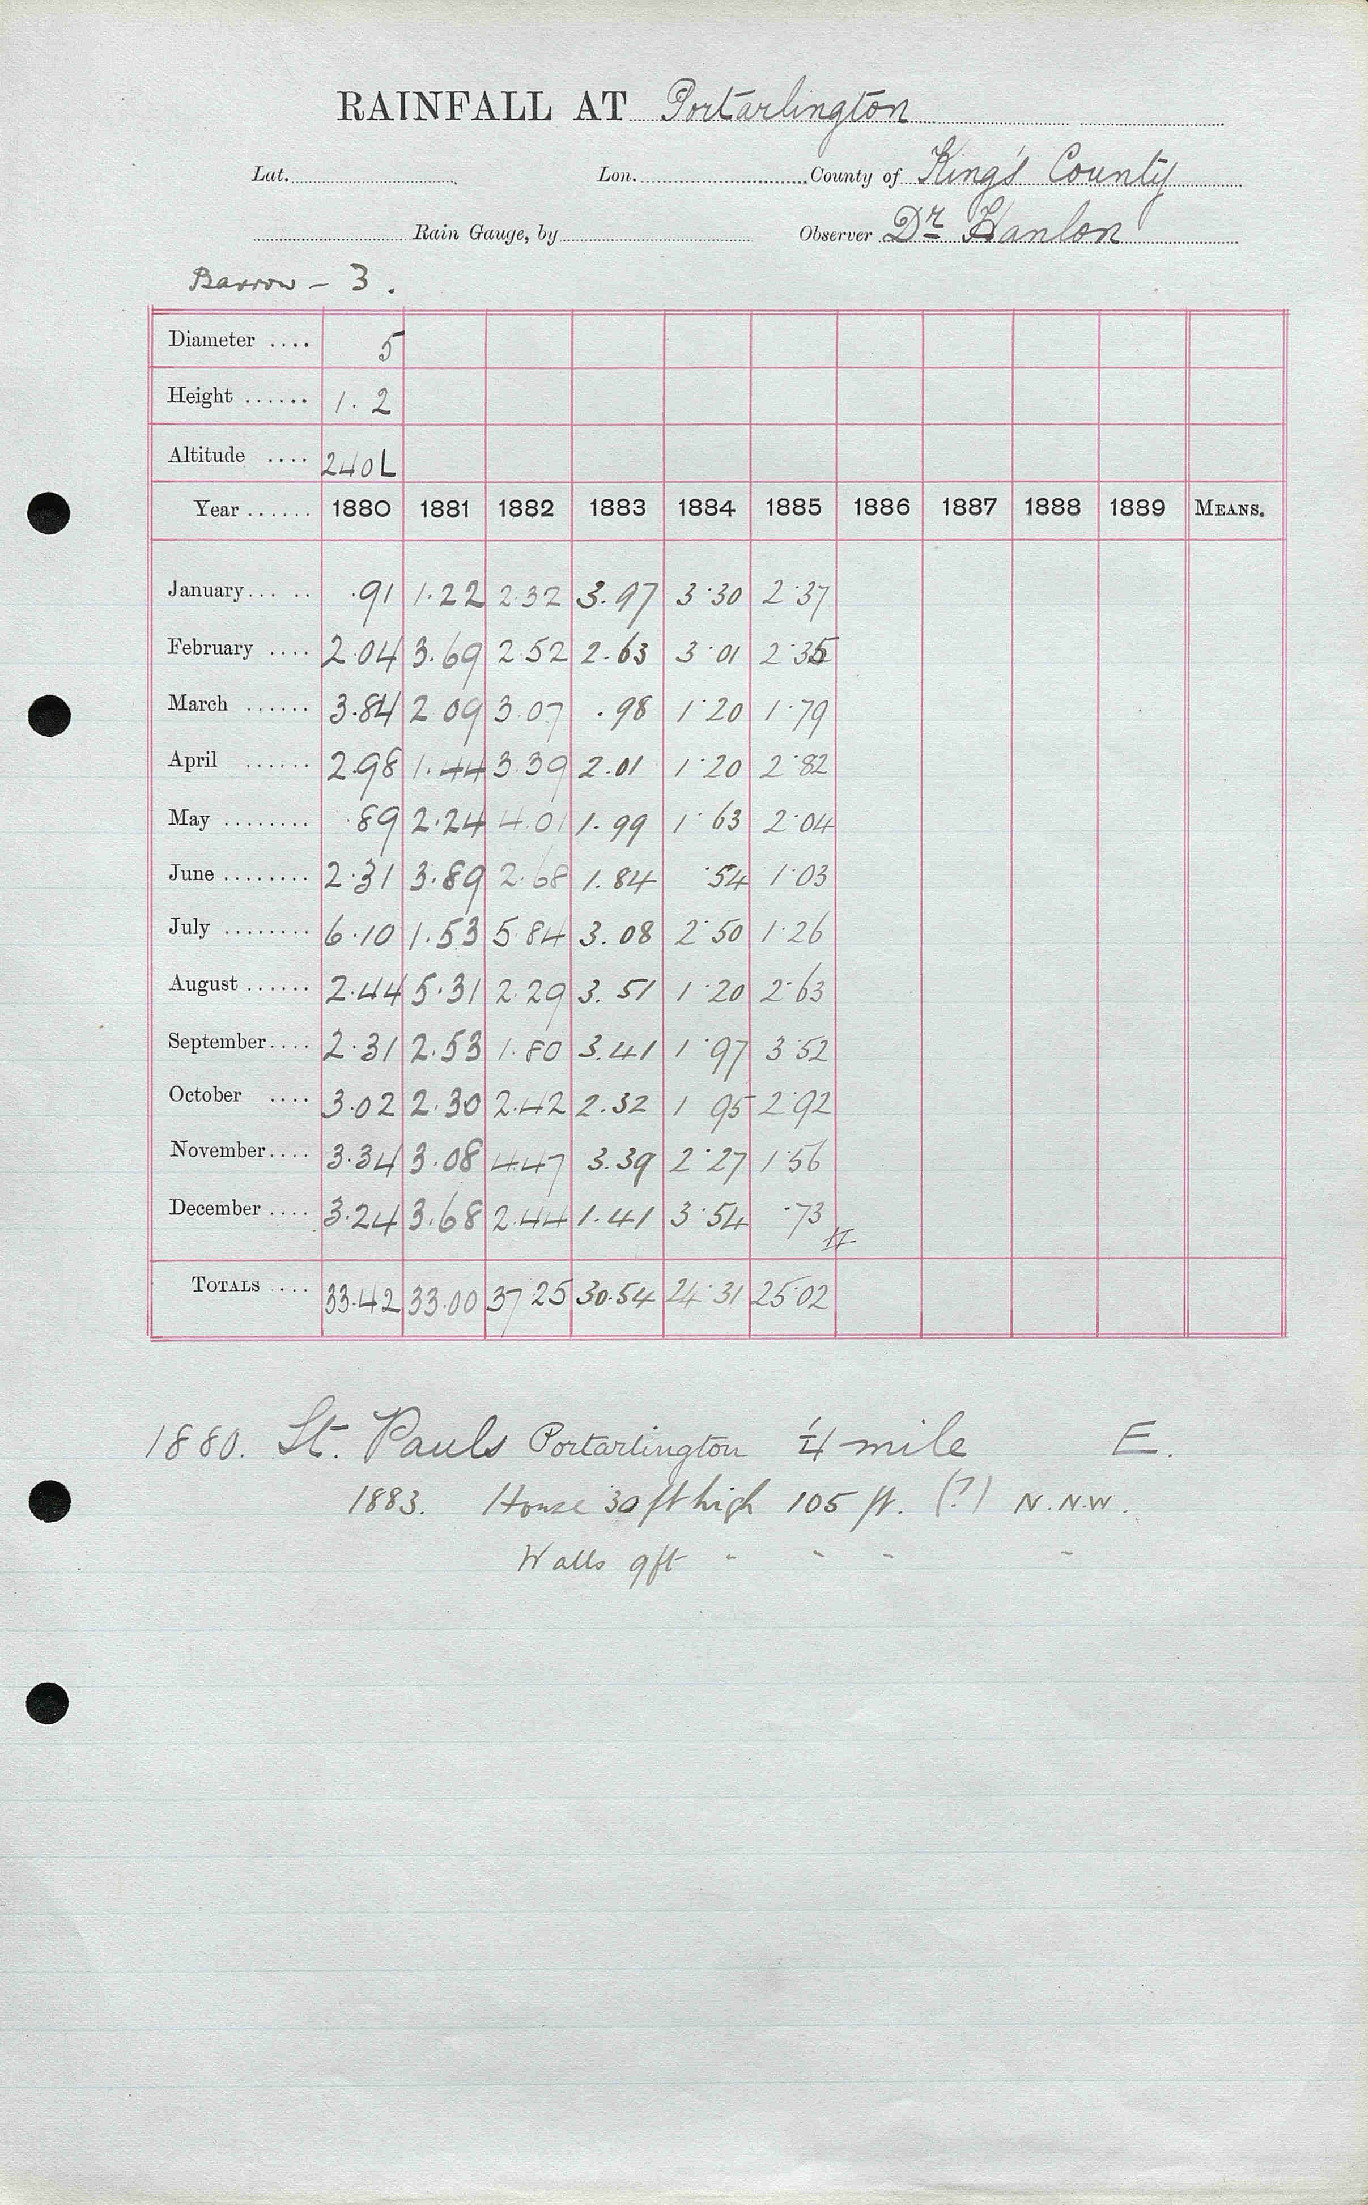 RAINFALL AT Portarlington
Lat. Lon. County of King's County
Rain Gauge, by Observer Dr Hanlon
Barrow - 3.
Diameter .... 5
Height ...... 1.2
Altitude .... 240L
Year ...... 1880 1881 1882 1883 1884 1885 1886 1887 1888 1889 MEANS.
January ... .. .91 1.22 2.32 3.97 3.30 2.37
February .... 2.04 3.69 2.52 2.63 3.01 2.35
March ...... 3.84 2.09 3.07 .98 1.20 1.79
April ...... 2.98 1.44 3.39 2.01 1.20 2.82
May ........ .89 2.24 4.01 1.99 1.63 2.04
June ........ 2.31 3.89 2.68 1.84 .54 1.03
July ........ 6.10 1.53 5.84 3.08 2.50 1.26
August ...... 2.44 5.31 2.29 3.51 1.20 2.63
September .... 2.31 2.53 1.80 3.41 1.97 3.52
October .... 3.02 2.30 2.42 2.32 1 95 2.92
November .... 3.34 3.08 4.47 3.39 2.27 1.56
December .... 3.24 3.68 2.44 1.41 3.54 .73
TOTALS .... 33.42 33.00 37.25 30.54 24.31 25.02
1880. St. Pauls Portarlington 1/4 mile E.
1883. House 30 ft high 105 ft. (?) N.N.W.
Walls 9ft " " " "